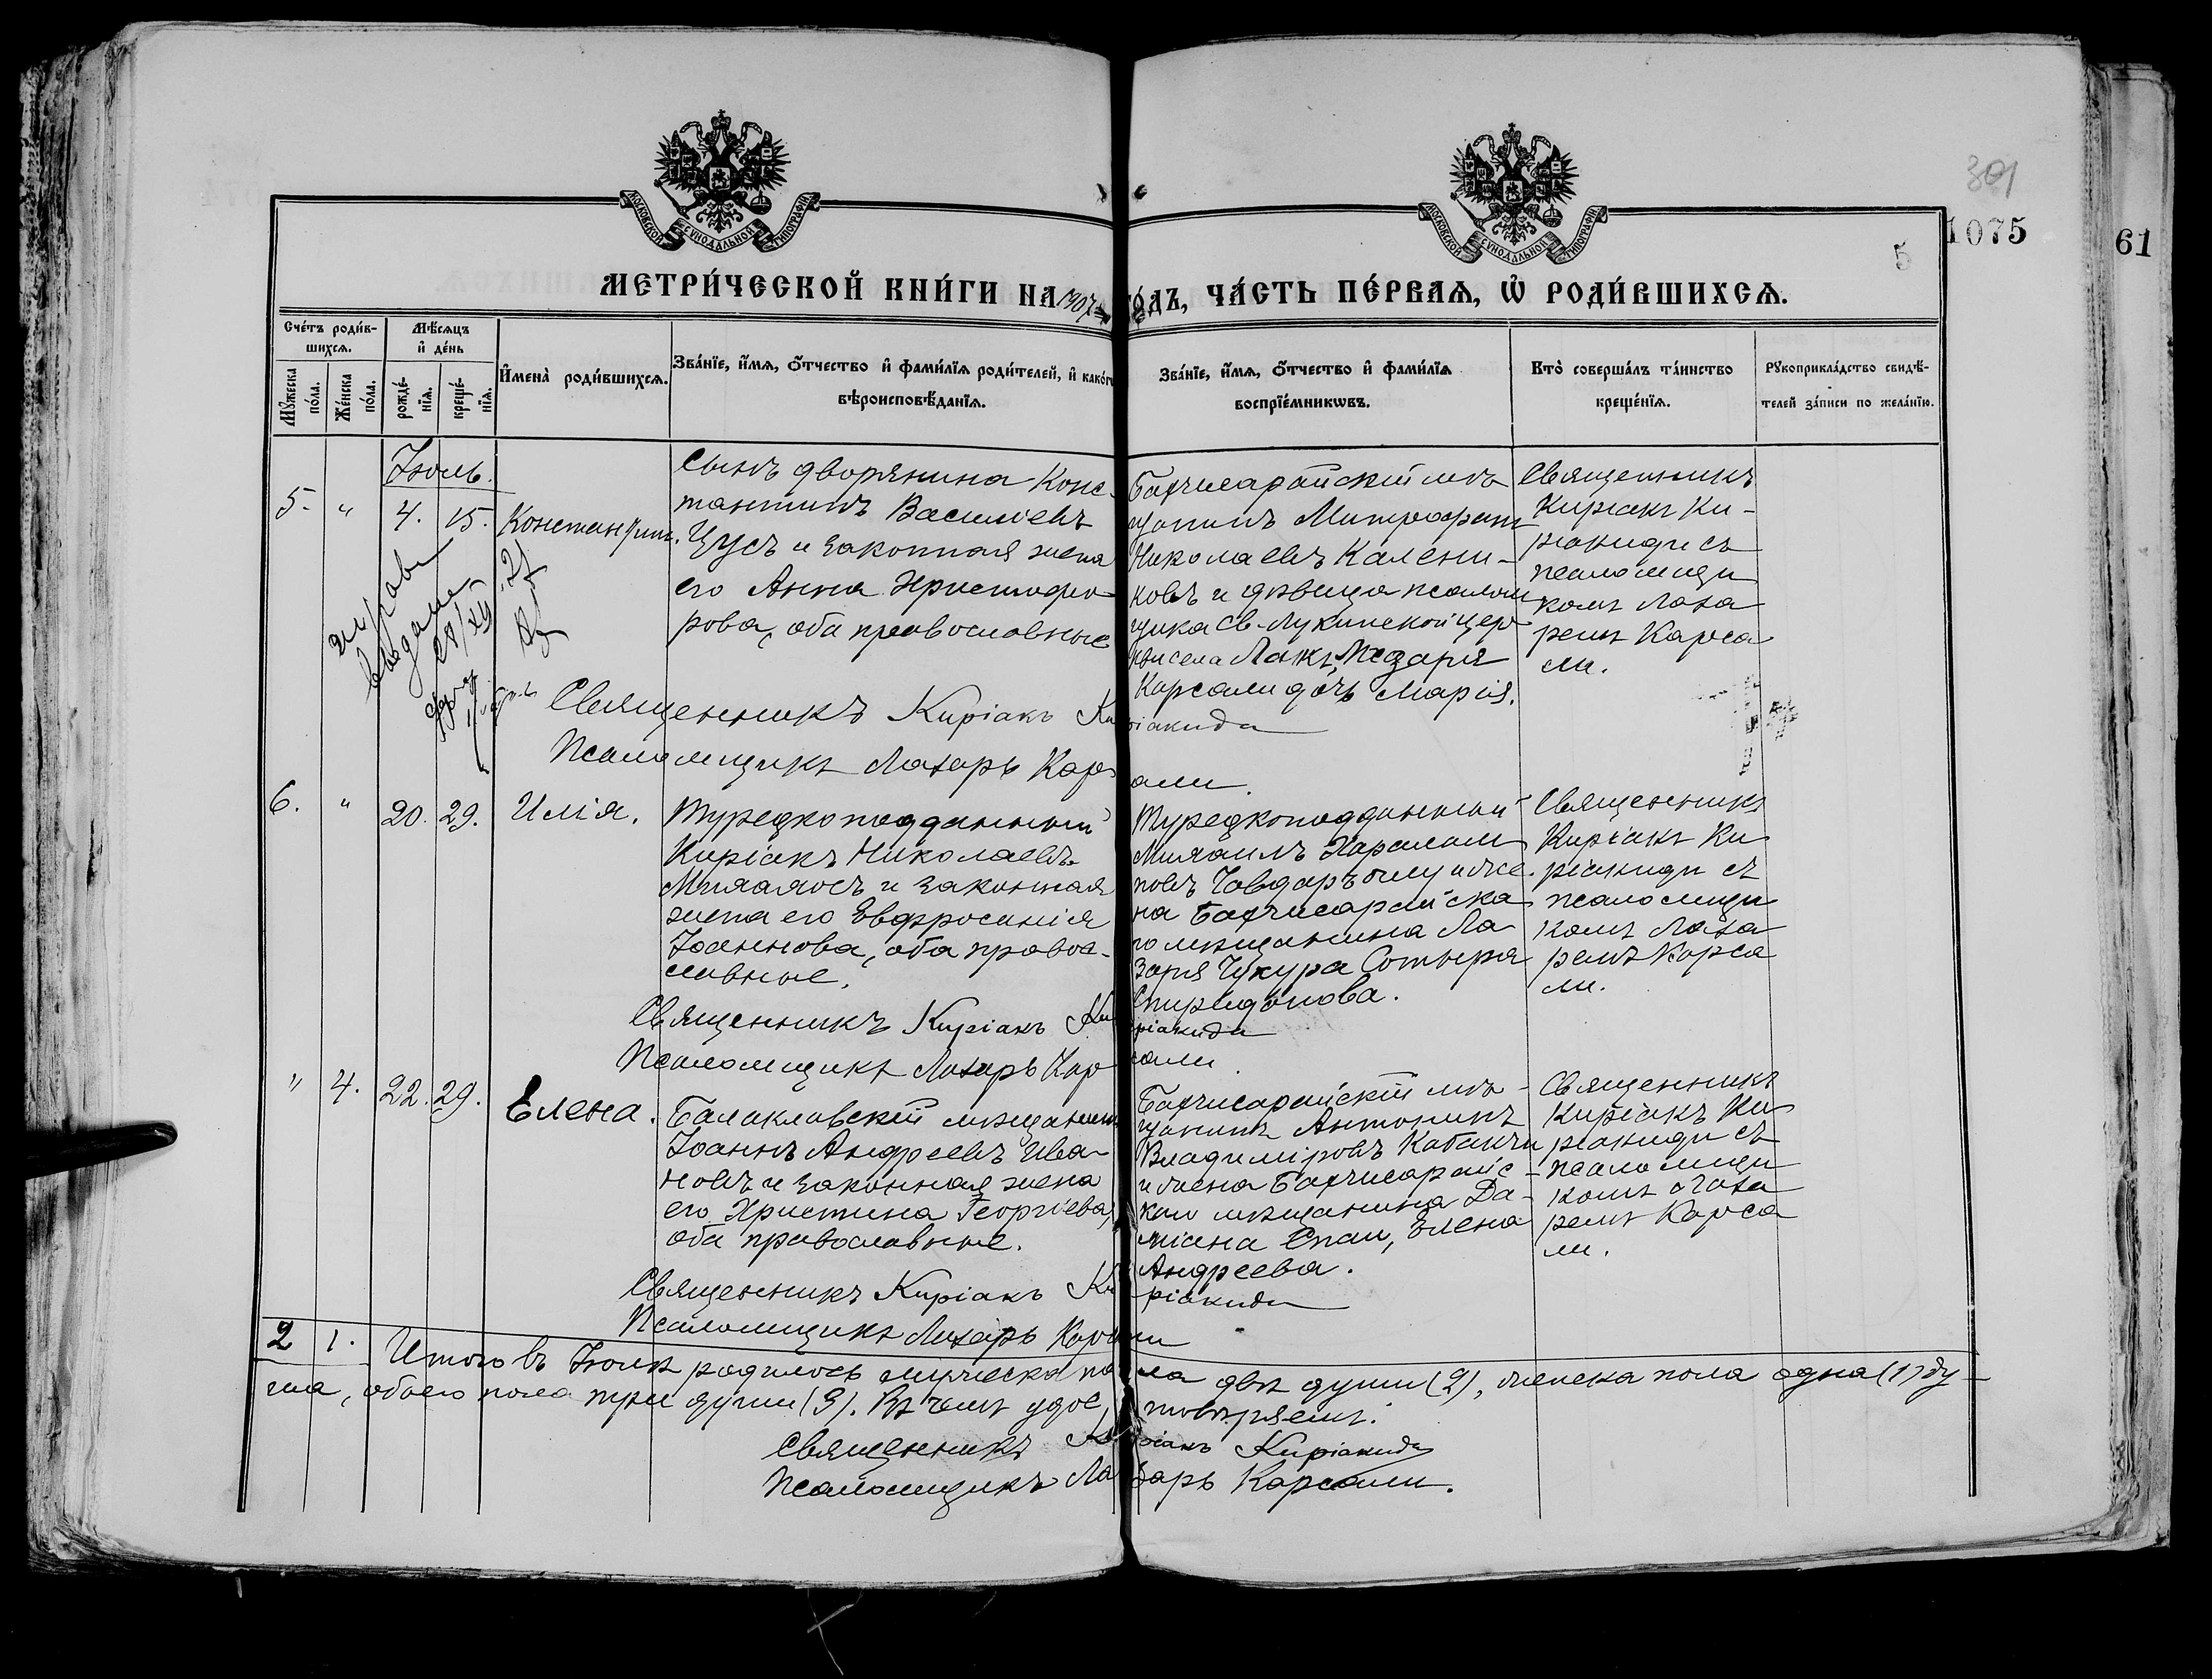 301
1075
61
5
МОСКОВСКОЙ СѴНОДАЛЬНОЙ ТИПОГРАФІИ
МОСКОВСКОЙ СѴНОДАЛЬНОЙ ТИПОГРАФІИ
МЕТРИ́ЧЕСКОЙ КНИ́ГИ НА 1907 ГО́ДЪ, ЧА́СТЬ ПЕ́РВАѦ, Ѽ РОДИ́ВШИХСѦ.
Сче́тъ роди́в-
шихсѧ.
Мѣ́сѧцъ
и҆ де́нь
Мꙋ́жеска
по́ла.
Же́нска
по́ла.
рожде́-
нїѧ.
креще́-
нїѧ.
И҆мена̀ роди́вшихсѧ.
Зва́нїе, и҆́мѧ, ѻ҆́тчество и҆ фами́лїѧ роди́телей, и҆ како́гѡ
вѣроисповѣ́данїѧ.
Зва́нїе, и҆́мѧ, ѻ҆́тчество и҆ фами́лїѧ
воспрїе́мникѡвъ.
Кто̀ соверша́лъ та́инство
креще́нїѧ.
Рꙋкоприкла́дство свидѣ́-
телей за́писи по жела́нїю.
Іюль.
5. " 4. 15. Константинъ.
Сынъ дворянина Конс-
тантинъ Васильевъ
Цусъ и законная жена
его Анна Христофо-
рова, оба православные
Бахчисарайскій мѣ
щанинъ Митрофанъ
Николаевъ Калени-
ковъ и дѣвица псалом
щика Св. Лукинской цер
кви села Лаки, Лазаря
Карсали дочь Марія.
Священникъ
Киріакъ Ки-
ріакиди съ
псаломщи
комъ Лаза
ремъ Карса
ли.
выдана
Священникъ Киріакъ Киріакиди
Псаломщикъ Лазарь Карсали.
6. " 20. 29. Илія.
Турецкоподданный
Киріакъ Николаевъ
Михаялосъ и законная
жена его Евфросинія
Іоаннова, оба правос-
лавные.
Турецкоподданный
Михаилъ Харалам
повъ Човдаръоглу и же-
на Бахчисарайска
го мѣщанина Ла
заря Чукура Сотыря
Спиридонова.
Священникъ
Киріакъ Ки
ріакиди съ
псаломщи
комъ Лаза
ремъ Карса
ли.
Священникъ Киріакъ Киріакиди
Псаломщикъ Лазарь Карсали
" 4. 22. 29. Елена.
Балаклавскій мѣщанинъ
Іоаннъ Андреевъ Ива-
новъ и законная жена
его Христина Георгіева,
оба православные.
Бахчисарайскій мѣ-
щанинъ Антонинъ
Владиміровъ Кабакчи
и жена Бахчисарайс-
каго мѣщанина Да-
міана Спаи, Елена
Андреева.
Священникъ
Киріакъ Ки
ріакиди съ
псаломщи
комъ Лаза
ремъ Карса
ли.
Священникъ Киріакъ Киріакиди
Псаломщикъ Лазарь Карсали
2 1. Итого въ Іюлѣ родилось мужеска пола двѣ души (2), женска пола одна (1) ду-
ша, обоего пола три души (3). Въ чемъ удостовѣряемъ.
Священникъ Киріакъ Киріакиди
Псаломщикъ Лазарь Карсали.